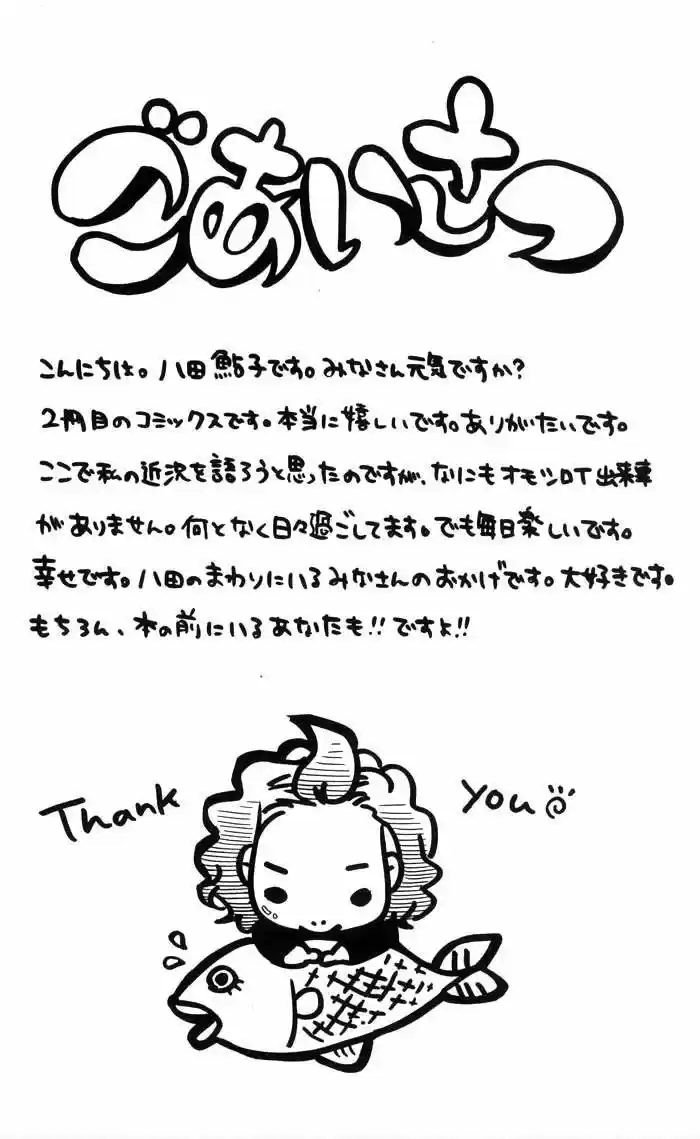 ごあいさつ
こんにちは。八田鮎子です。みなさん元気ですか?
2冊目のコミックスです。本当に嬉しいです。ありがたいです。
ここで私の近況を語ろうと思ったのですが、なにもオモシロイ出来事
がありません。何となく日々過ごしてます。でも毎日楽しいです。
幸せです。八田のまわりにいるみなさんのおかげです。大好きです。
もちろん、本の前にいるあなたも!!ですよ!!
Thank you